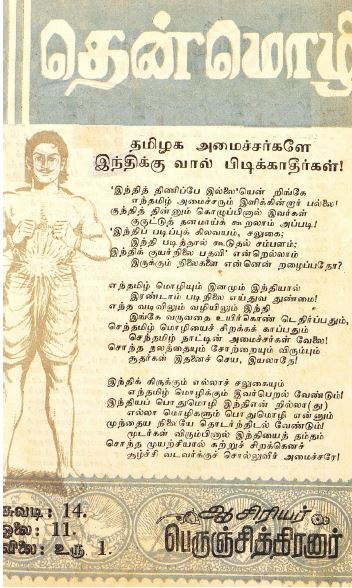 தென்மொழி
தமிழக அமைச்சர்களே
இந்திக்கு வால் பிடிக்காதிர்கள்!
'இந்தித் திணிப்பே இல்லை'யென் றிங்கே
எந்தமிழ் அமைச்சரும் இளிக்கின்றார் பல்லை!
குந்தித் தின்னும் கொழுப்பினால் இவர்கள்
குருட்டுத் தனமாய்க் கூறலாம் அப்படி!
'இந்திப் படிப்புக் கிலவயம், சலுகை;
இந்தி படித்தால் கூடுதல் சம்பளம்;
இந்திக் குயர்நிலை பதவி' என்றெல்லாம்
இருக்கும் நிலைகளை என்னென் றழைப்பதோ?
எந்தமிழ் மொழியும் இனமும் இந்தியால்
இரண்டாம் படிநிலை எய்துவ துண்மை!
எந்த வடிவிலும் வழியிலும் இந்தி
இங்கே வருவதை உயிர்கொண் டெதிர்ப்பதும்,
செந்தமிழ் மொழியைச் சிறக்கக் காப்பதும்
செந்தமிழ் நாட்டின் அமைச்சர்கள் வேலை!
சொந்த நலத்தையும் சோற்றையும் விரும்பும்
சூதர்கள் இதனைச் செய, இயலாதே!
இந்திக் கிருக்கும் எல்லாச் சலுகையும்
எந்தமிழ் மொழிக்கும் இவர்பெறல் வேண்டும்!
இந்தியப் பொதுமொழி இந்தியென் றில்லா(து)
எல்லா மொழிகளும் பொதுமொழி என்னும்
முந்தைய நிலையே தொடர்ந்திடல் வேண்டும்!
மூடர்கள் விரும்பினால் இந்தியைத் தம்தம்
சொந்த முயற்சியால் கற்றுச் சிறக்கெனச்
சூழ்ச்சி வடவர்க்குச் சொல்லுவீர் அமைச்சரே!
சுவடி: 14.
ஓலை: 11.
விலை: உரு 1.
ஆசிரியர்
பெருஞ்சித்திரனார்